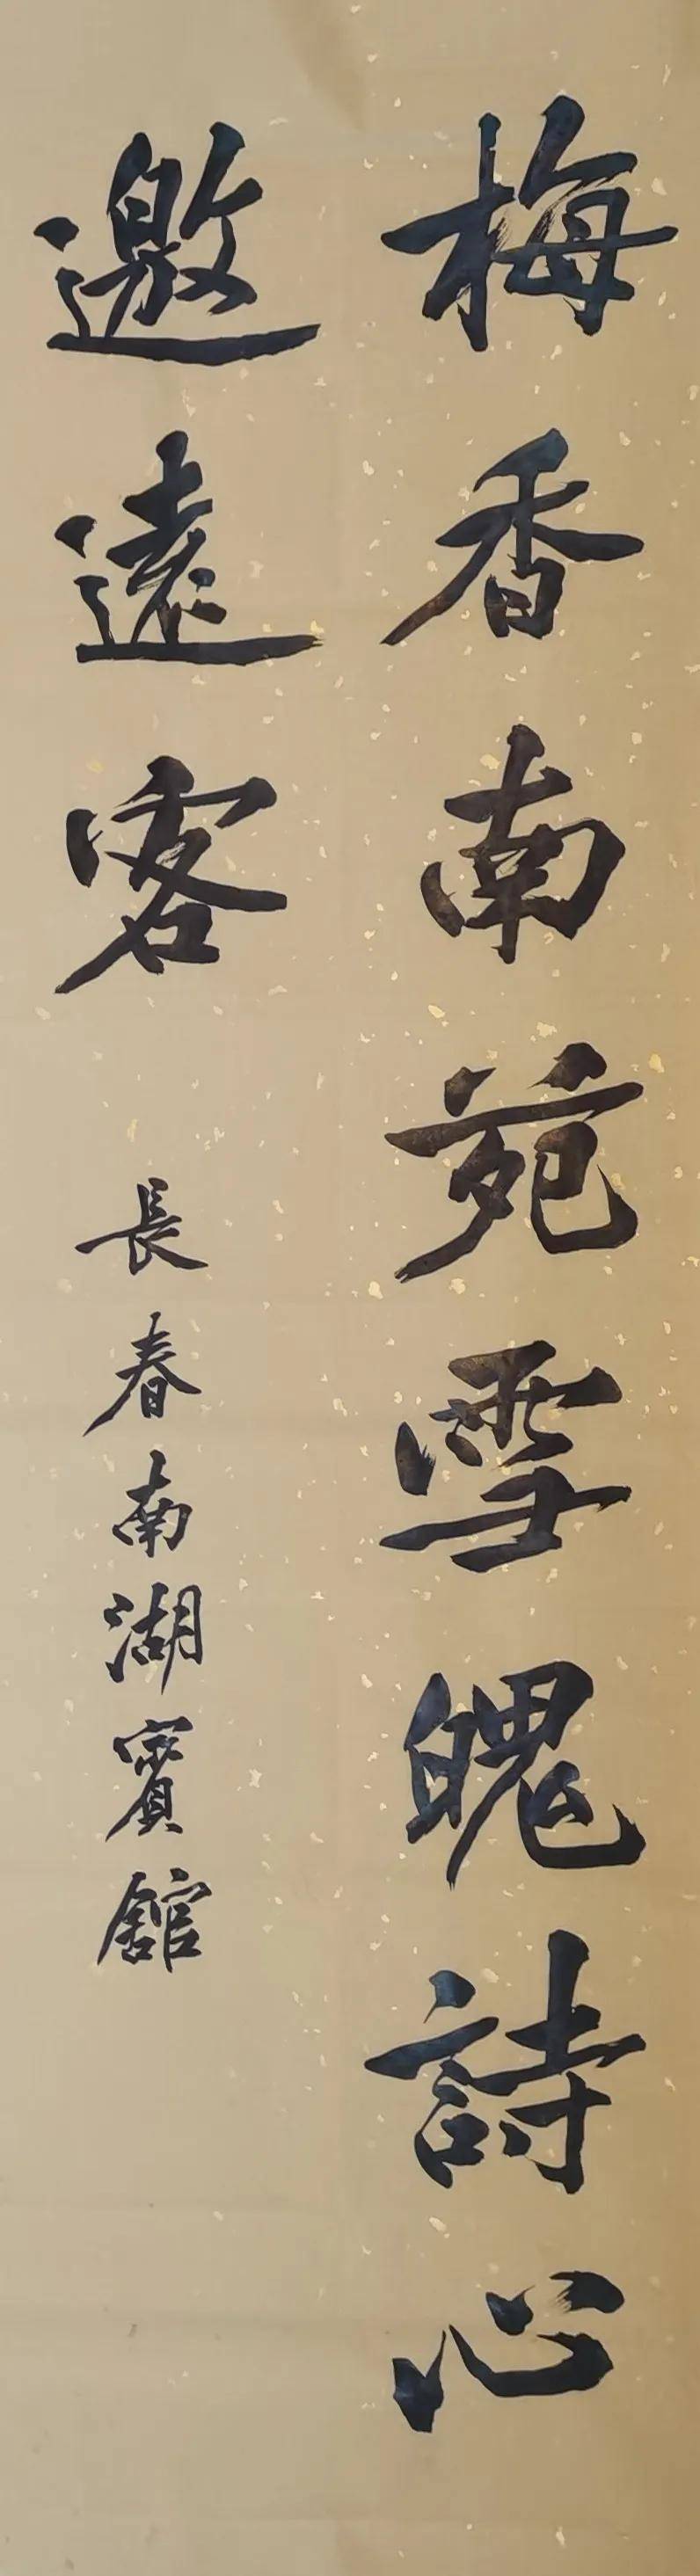 梅香南苑雪魄詩心
邀遠客
長春南湖賓館